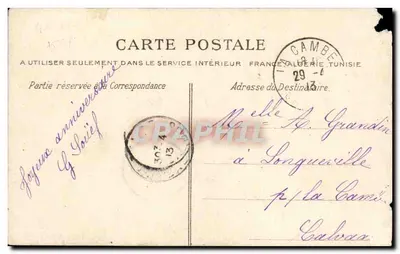 CARTE POSTALE
A UTILISER SEULEMENT DANS LE SERVICE INTÉRIEUR FRANCE, ALGÉRIE, TUNISIE
Partie réservée à la Correspondance
Adresse du Destinataire.
CAMBE
29
13
Joyeux anniversaire
G
Melle A. Grandin
a Longueville
p/ la Cambe
Calvados
30
4
13
PRphila